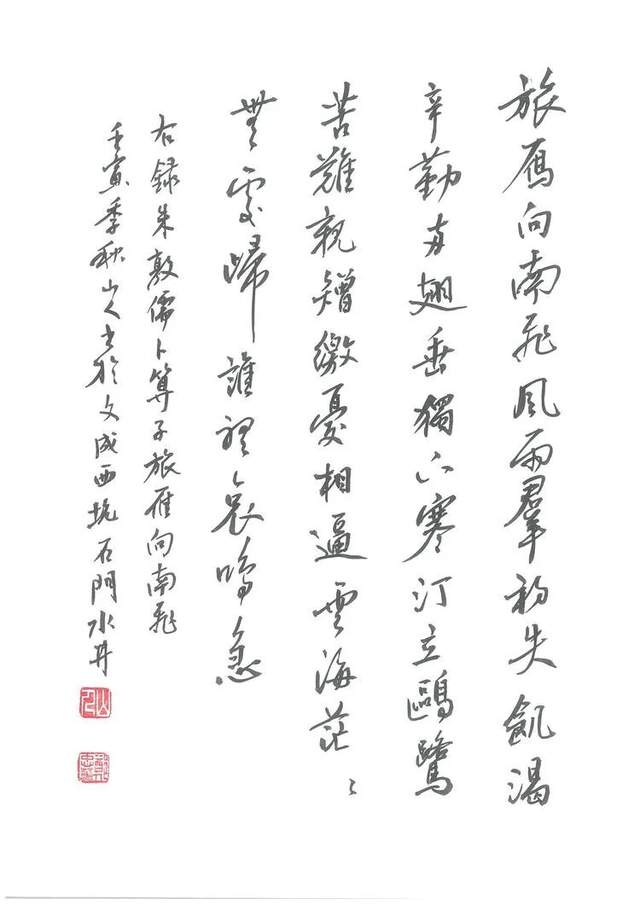 旅鴈向南飛風雨羣初失飢渴
辛勤兩翅垂獨下寒汀立鷗鷺
苦難親矰繳憂相逼雲海茫〻
無處歸誰聽哀鳴急
右録朱敦儒卜算子旅雁向南飛
壬寅季秋山人書於文成西坑石門水井
山人